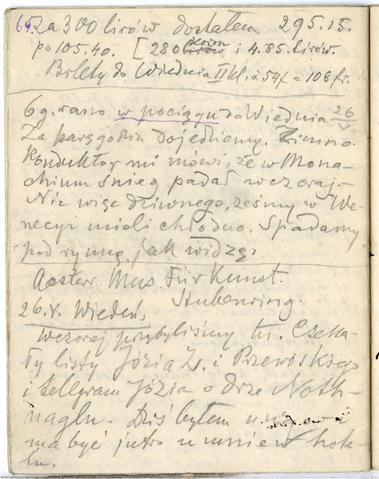 64.
Za 300 lirów dostałem 295.15.
po 105.40. [280 koron i 4.85 lirów.
Bilety do Wiednia II kl. à 54 fr = 108 fr.
6 g. rano w pociągu do Wiednia 26/V
Za parę godzin dojedziemy. Zimno.
Konduktor mi mówi, że w Mona-
chium śnieg padał wczoraj.-
Nic więc dziwnego, żeśmy w We-
necyi mieli chłodno. Spadamy
pod rynnę, jak widzę.
Oesterr. Mus. für Kunst.
Stubenring.
26.V. Wiedeń,
Wczoraj przybyliśmy tu. Czeka-
ły listy Józia Z. i Przewóskiego
i telegram Józia o drze Noth-
naglu. Dziś byłem u
ma być jutro u mnie w hote-
lu.